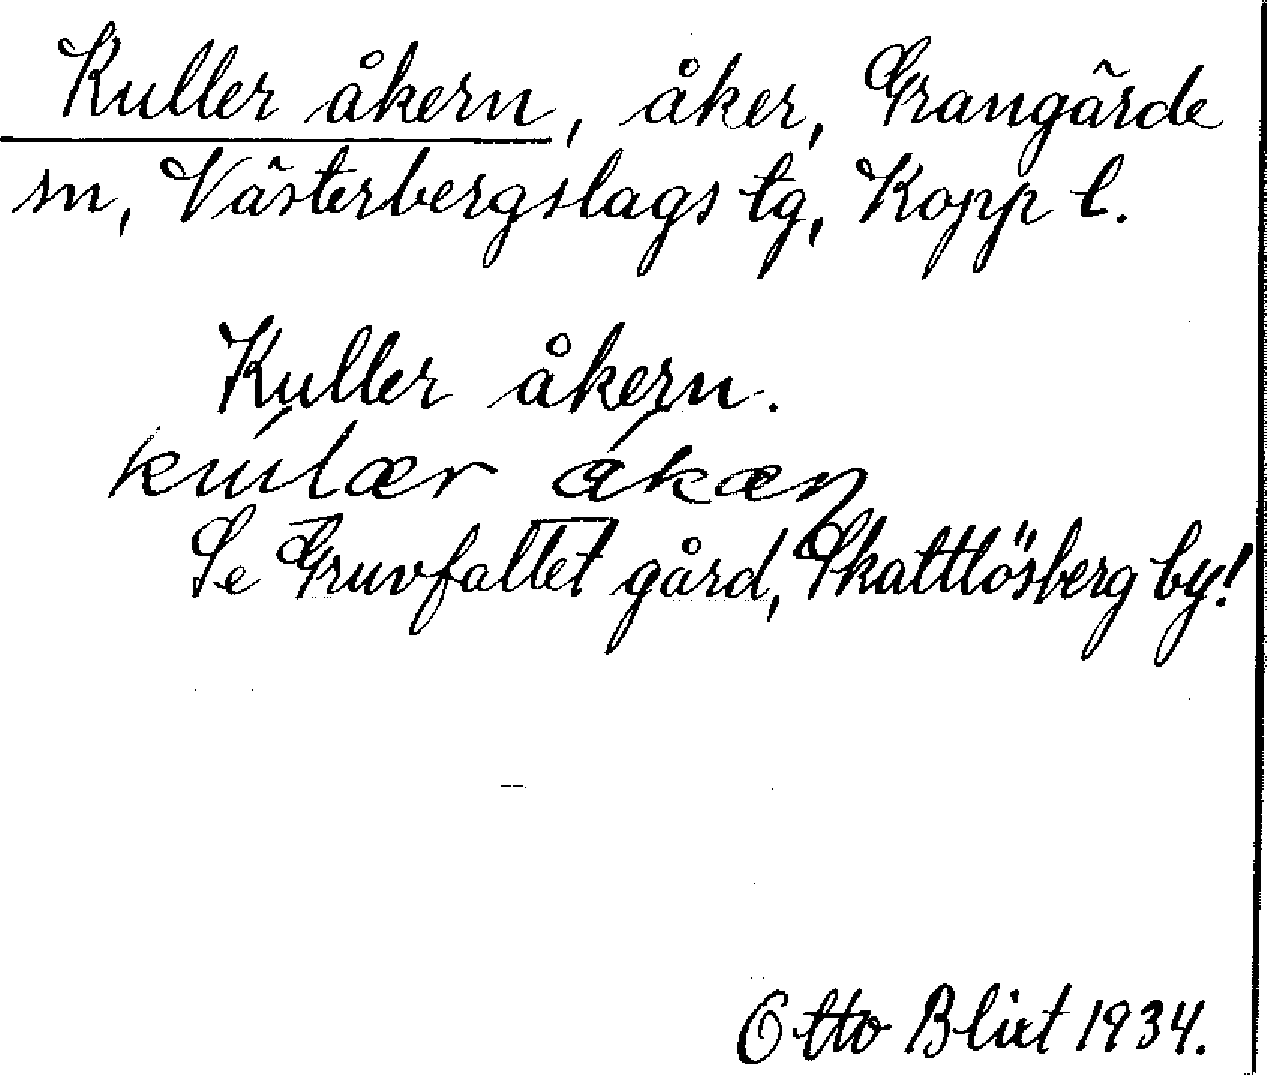 Kuller åkern, åker, Grangärde
sn, Västerbergslags tg, Kopp l.
Kuller åkern.
kulær åkæn
Se Gruvfallet gård, Skattlösberg by!
Otto Blixt 1934.